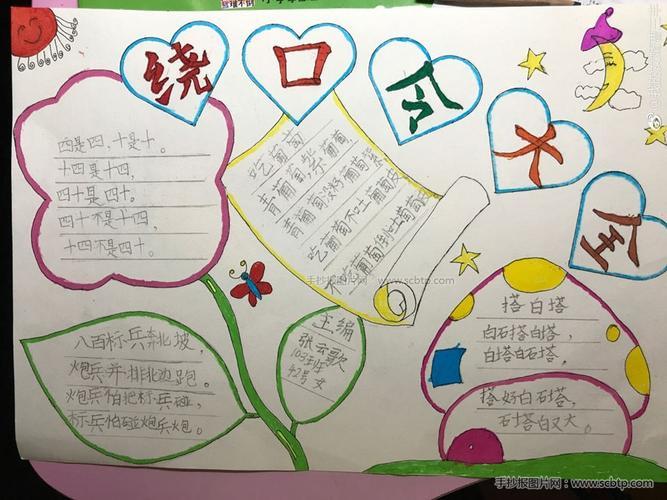 绕口令大全
四是四，十是十。
十四是十四，
四十是四十。
四十不是十四，
十四不是四十。
吃葡萄
青葡萄紫葡萄，
青葡萄没 葡萄紫
吃葡萄不吐葡萄皮
不吃葡萄 吐葡萄皮
八百标兵奔北坡，
炮兵并排北边跑。
炮兵怕把标兵碰，
标兵怕碰炮兵炮。
主编
张云歌
42号 女
搭白塔
白石搭白塔，
白塔白石塔。
搭好白石塔，
石塔白又大。
手抄报图片网 www.scbtp.com
手抄报图片网：www.scbtp.com